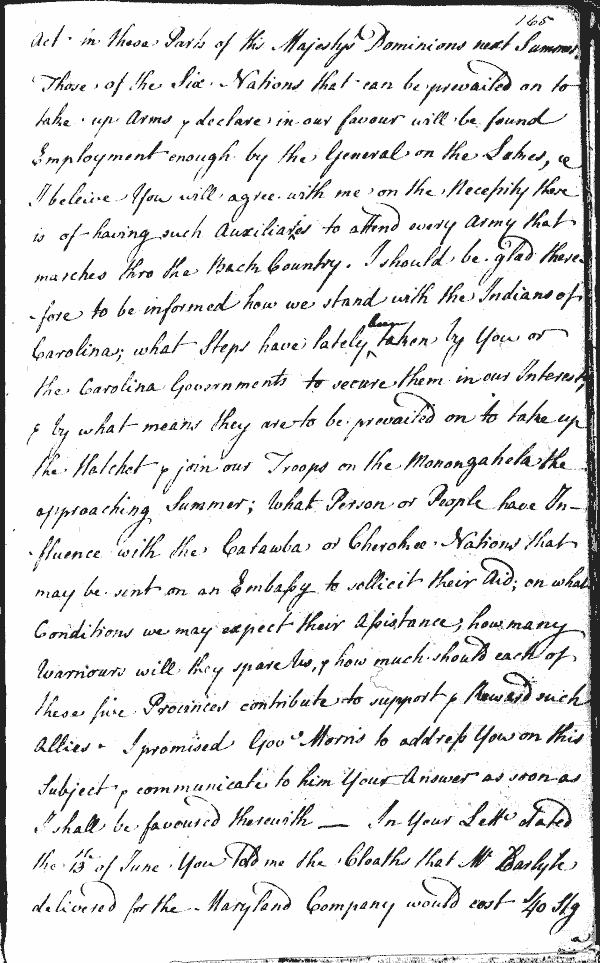 165
Act in these Parts of His Majesty's Dominions next Summer.
Those of the Six Nations that can be prevailed on to
take up Arms & declare in our favour will be found
Employment enough by the General on the Lakes, &
I beleive You will agree with me on the Necessity there
is of having such Auxiliaries to attend every Army that
marches thro the Back Country. I should be glad there-
-fore to be informed how we stand with the Indians of
Carolina; what Steps have lately been taken by You or
the Carolina Governments to secure them in our Interest,
& by what means they are to be prevailed on to take up
the Hatchet & join our Troops on the Monongahela the
approaching Summer; What Person or People have In-
-fluence with the Catawba or Cherokee Nations that
may be sent on an Embassy to sollicit their Aid; on what
Conditions we may expect their Assistance; how many
Warriours will they spare Us, & how much should each of
these five Provinces contribute to support & Reward such
Allies. I promised Govr. Morris to address You on this
Subject & communicate to him Your Answer as soon as
I shall be favoured therewith — In Your Lettr. dated
the 13th of June You Told me the Cloaths that Mr Carlyle
delivered for the Maryland Company would cost 40 Stg
a